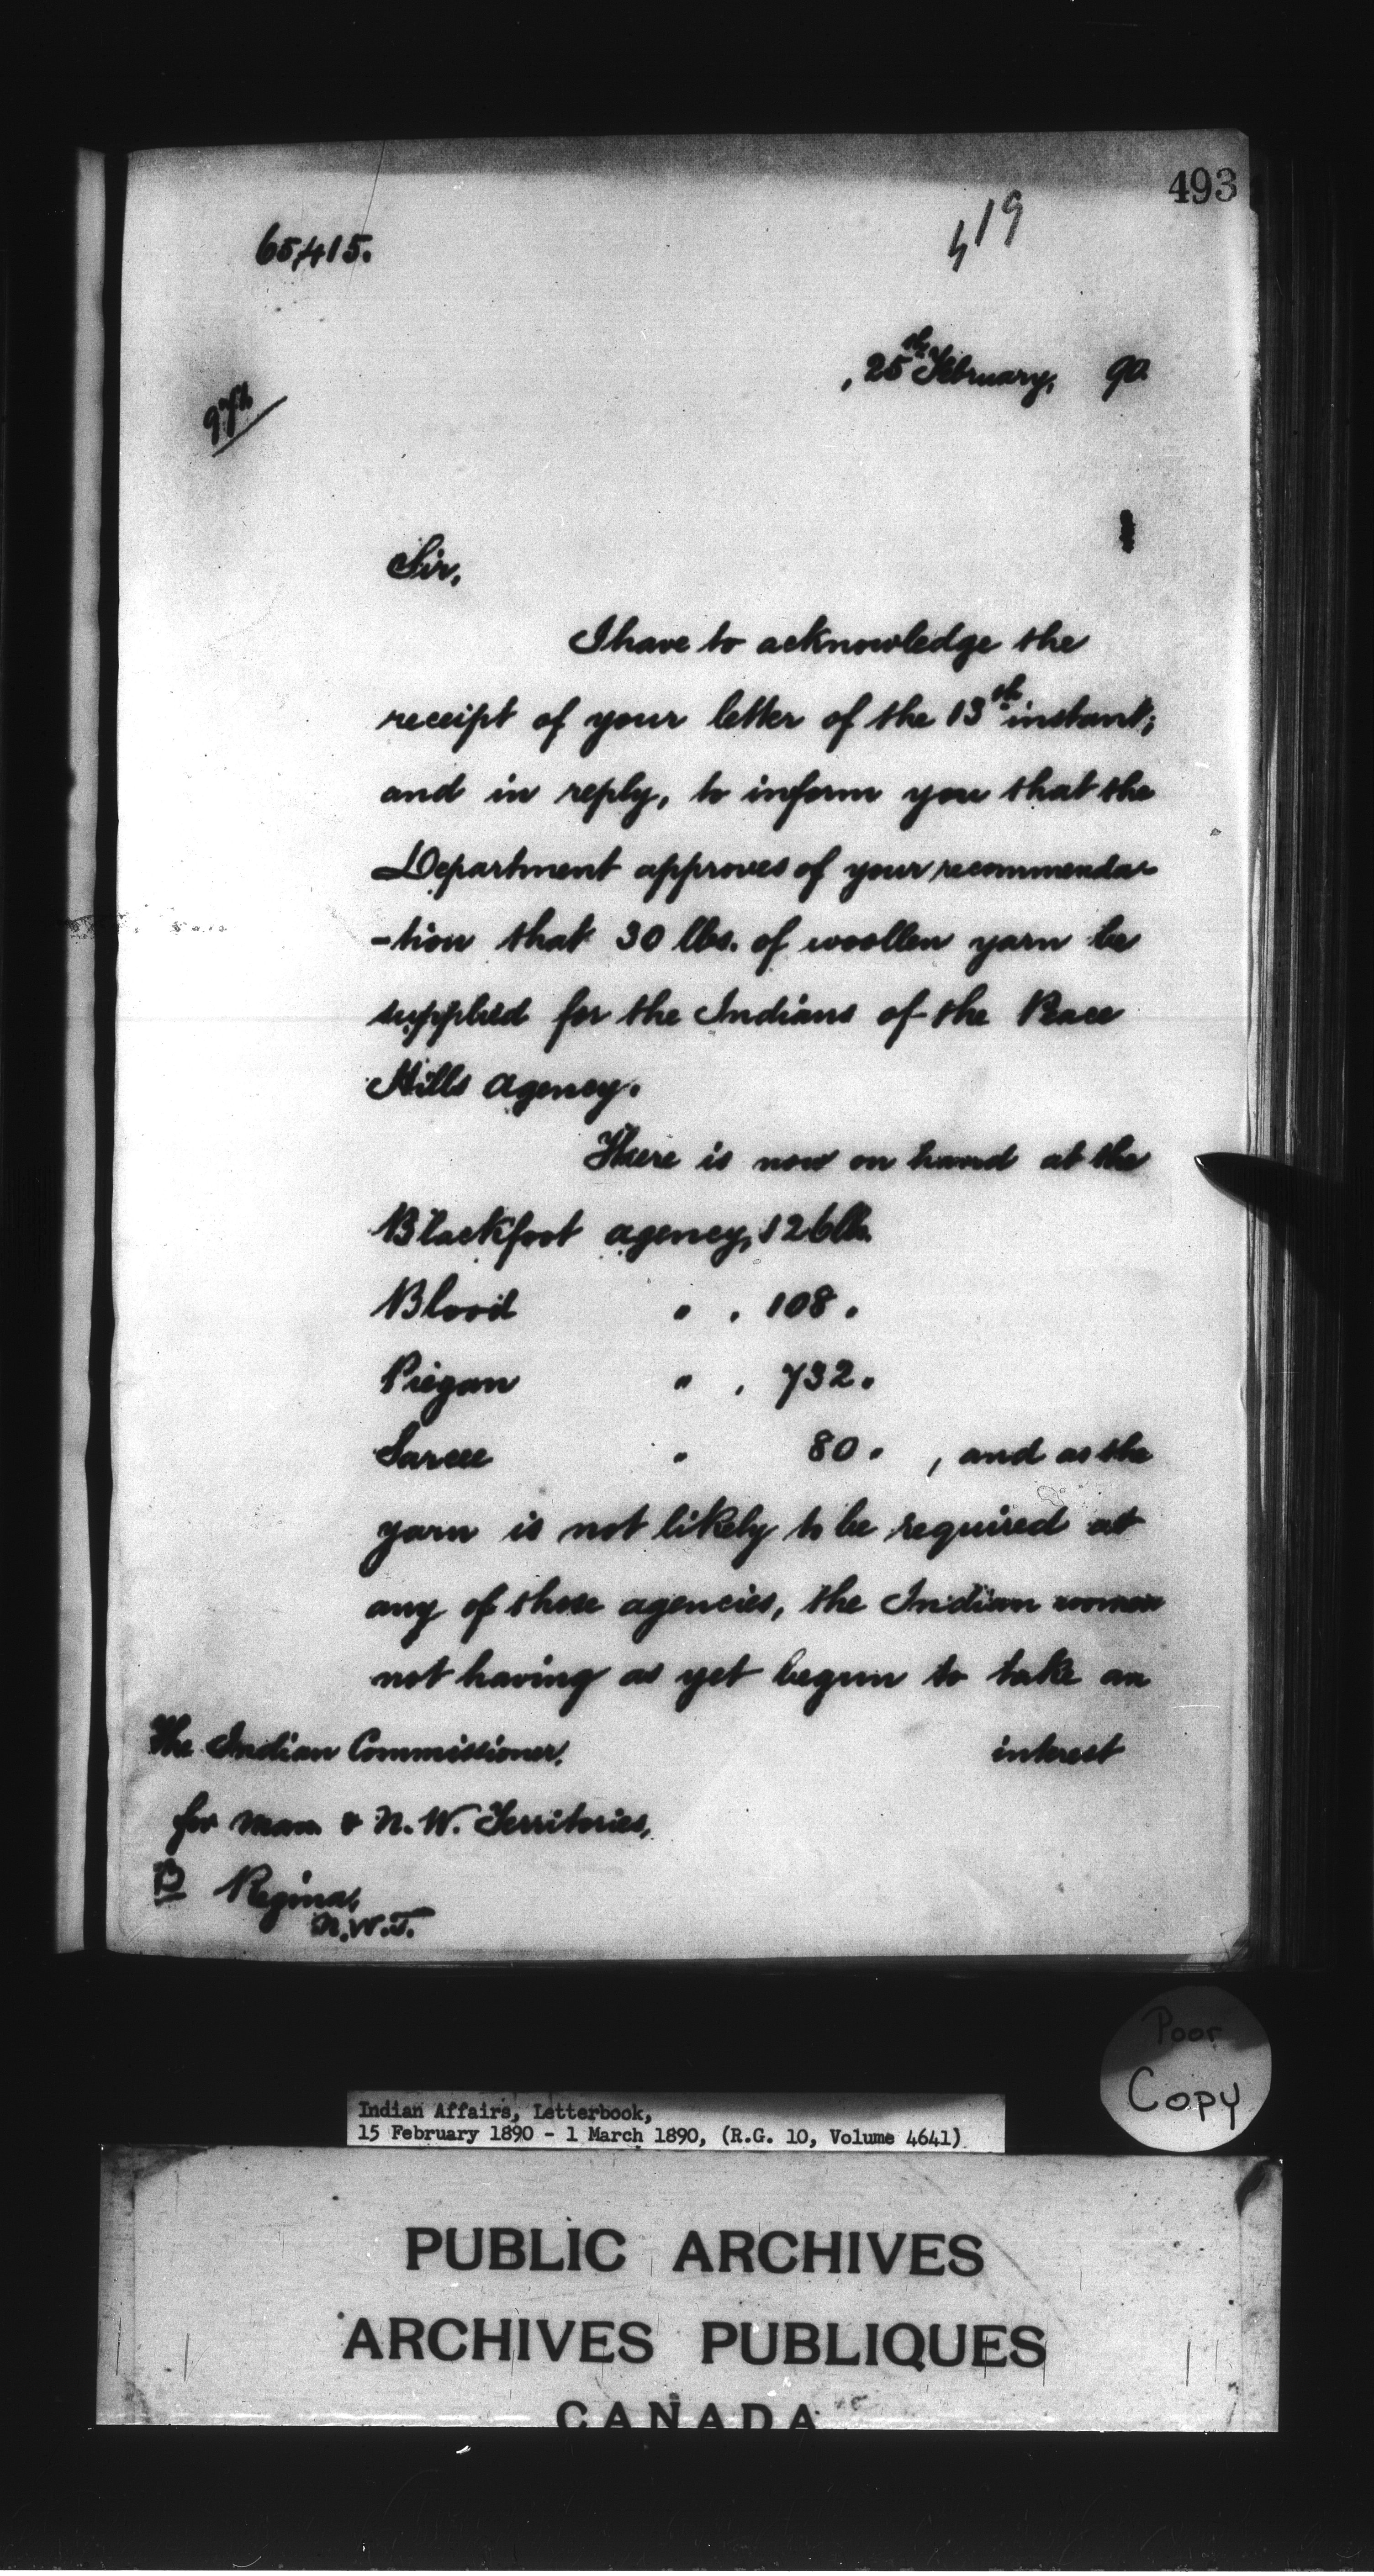 493
419
65,415.
, 25th February, 90.
Sir,
I have to acknowledge the
receipt of your letter of the 13th instant;
and in reply, to inform you that the
Department approves of your recommenda-
-tion that 30 lbs. of woollen yarn be
supplied for the Indians of the Peace
Hills agency.
There is now on hand at the
Blackfoot agency, 126 lb.
Blood " , 108 "
Piegan " , 732 "
Sarcee " 80 " , and as the
yarn is not likely to be required at
any of these agencies, the Indian women
not having as yet begun to take an
interest
The Indian Commissioner,
for Man. & N.W. Territories,
B Regina,
N.W.T.
Poor
Copy
Indian Affairs, Letterbook,
15 February 1890 - 1 March 1890, (R.G. 10, Volume 4641)
PUBLIC ARCHIVES
ARCHIVES PUBLIQUES
CANADA